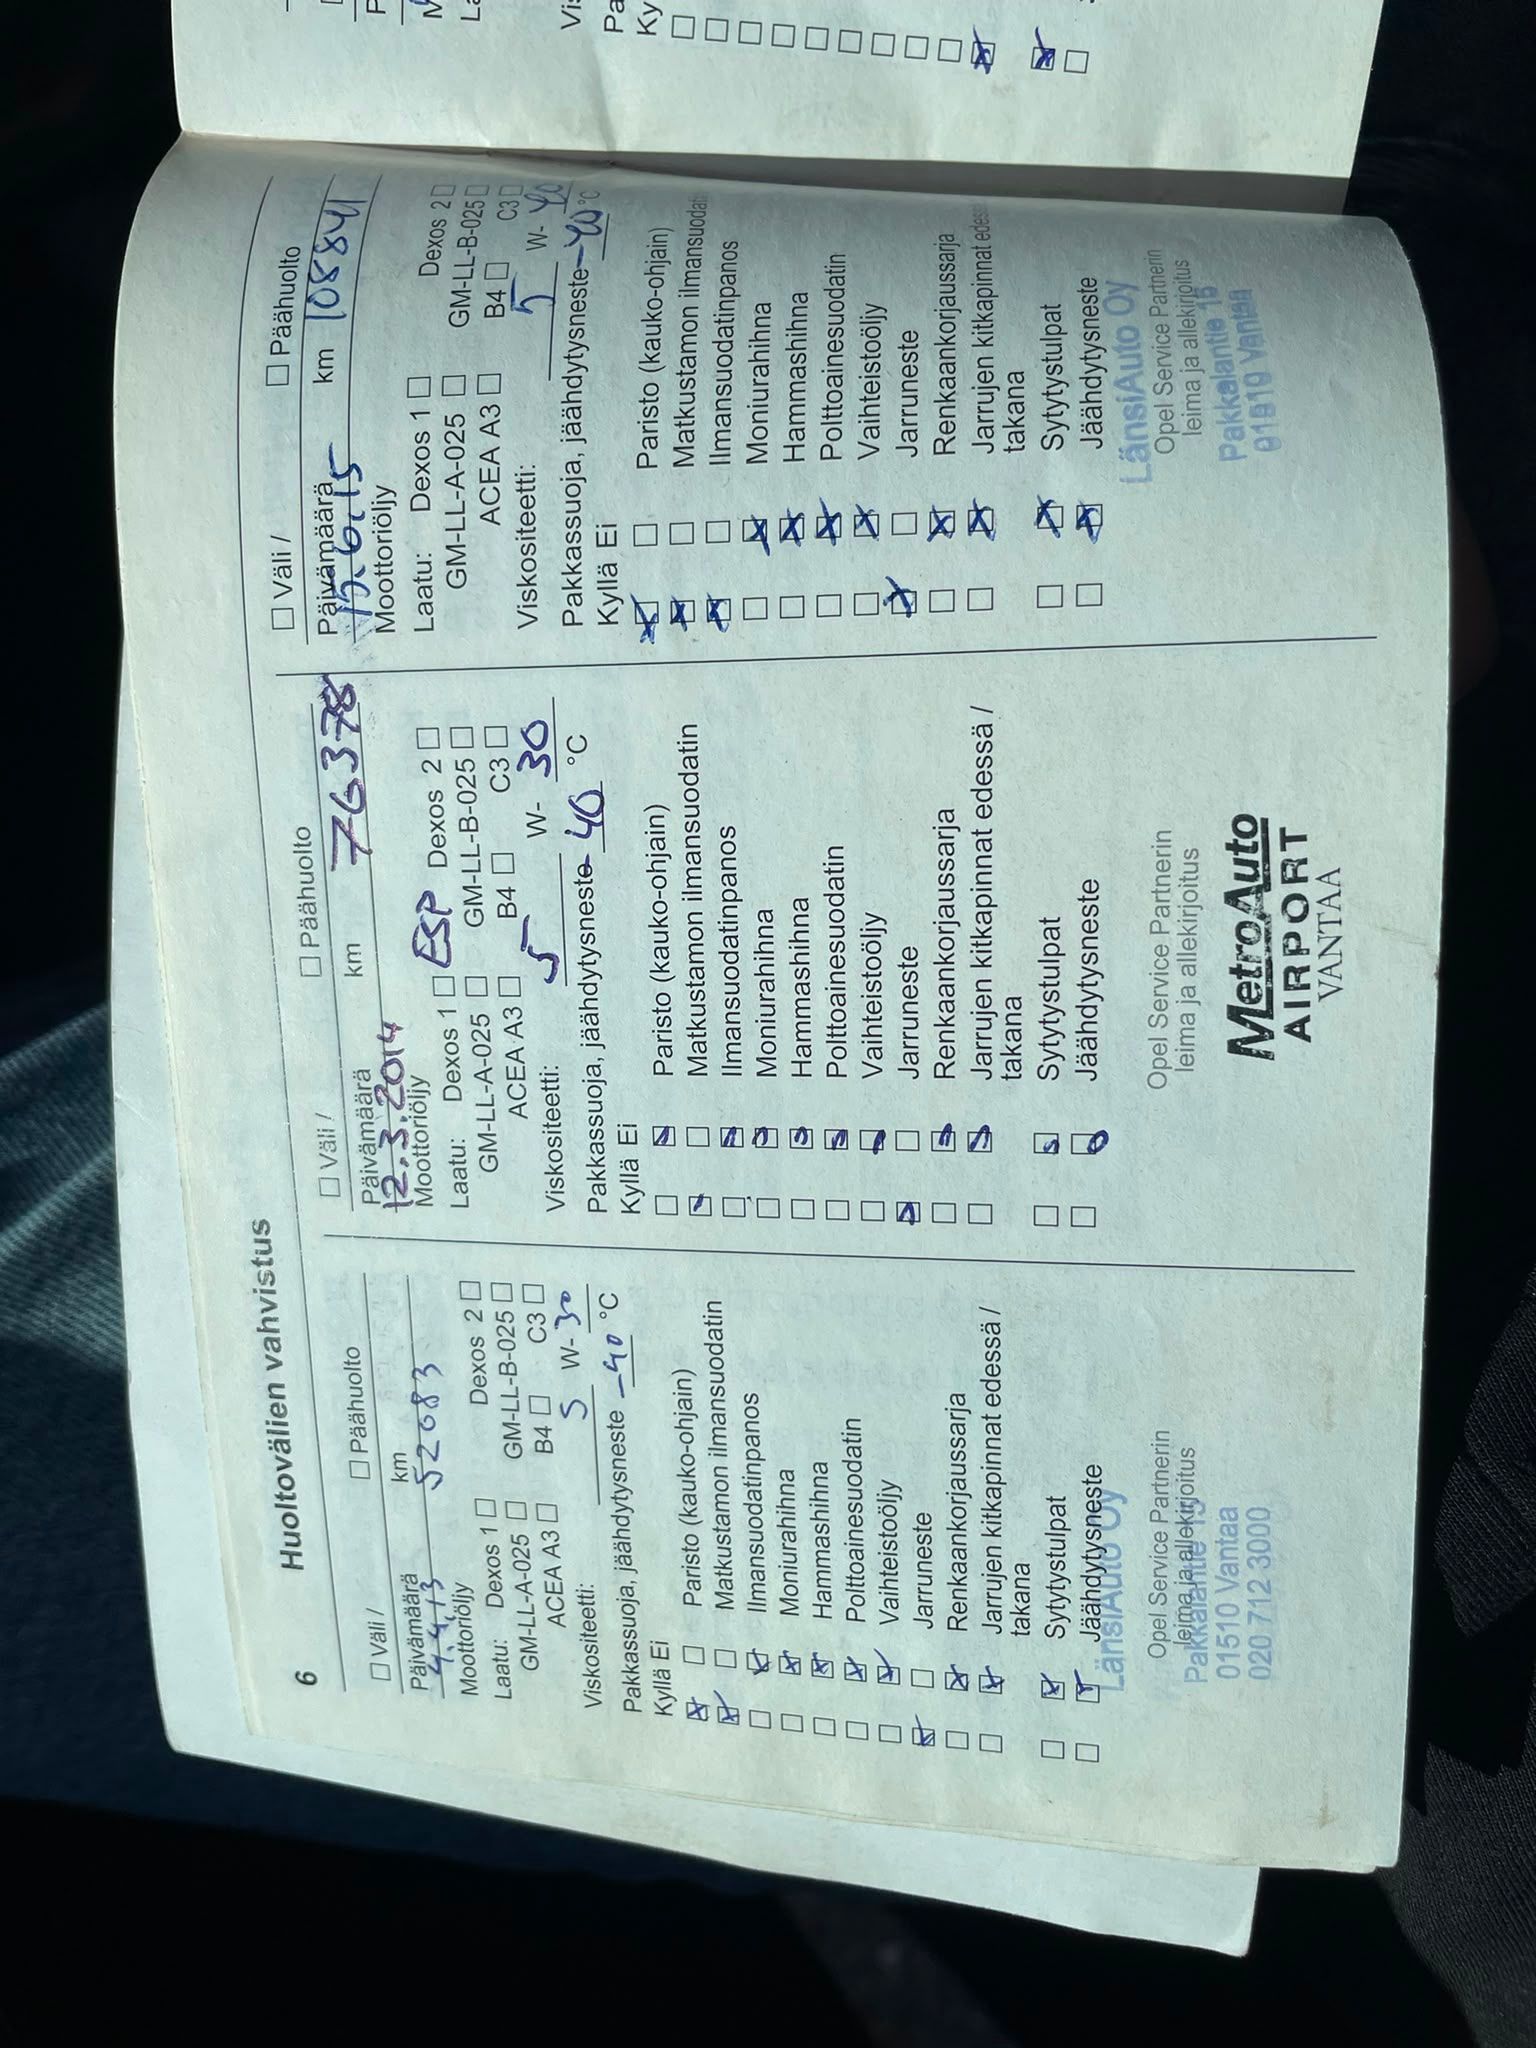 6 Huoltovälien vahvistus
☐ Väli / ☐ Päähuolto
Päivämäärä km
4.4.13 52083
Moottoriöljy
Laatu: Dexos 1 ☐ Dexos 2 ☐
GM-LL-A-025 ☐ GM-LL-B-025 ☐
ACEA A3 ☐ B4 ☐ C3 ☐
Viskositeetti: 5 W- 30
Pakkassuoja, jäähdytysneste -40 °C
Kyllä Ei
☒ ☐ Paristo (kauko-ohjain)
☒ ☐ Matkustamon ilmansuodatin
☐ ☒ Ilmansuodatinpanos
☐ ☒ Moniurahihna
☐ ☒ Hammashihna
☐ ☒ Polttoainesuodatin
☐ ☒ Vaihteistoöljy
☒ ☐ Jarruneste
☐ ☒ Renkaankorjaussarja
☐ ☒ Jarrujen kitkapinnat edessä /
takana
☐ ☒ Sytytystulpat
☐ ☒ Jäähdytysneste
LänsiAuto Oy
Opel Service Partnerin
leima ja allekirjoitus
Pakkalantie 15
01510 Vantaa
020 712 3000
☐ Väli / ☐ Päähuolto
Päivämäärä km 76378
12.3.2014
Moottoriöljy
Laatu: Dexos 1 ☐ ESP Dexos 2 ☐
GM-LL-A-025 ☐ GM-LL-B-025 ☐
ACEA A3 ☐ B4 ☐ C3 ☐
Viskositeetti: 5 W- 30
Pakkassuoja, jäähdytysneste -40 °C
Kyllä Ei
☐ ☒ Paristo (kauko-ohjain)
☒ ☐ Matkustamon ilmansuodatin
☐ ☒ Ilmansuodatinpanos
☐ ☒ Moniurahihna
☐ ☒ Hammashihna
☐ ☒ Polttoainesuodatin
☐ ☒ Vaihteistoöljy
☒ ☐ Jarruneste
☐ ☒ Renkaankorjaussarja
☐ ☒ Jarrujen kitkapinnat edessä /
takana
☐ ☒ Sytytystulpat
☐ ☒ Jäähdytysneste
Opel Service Partnerin
leima ja allekirjoitus
MetroAuto
AIRPORT
VANTAA
☐ Väli / ☐ Päähuolto
Päivämäärä km 108841
15.6.15
Moottoriöljy
Laatu: Dexos 1 ☐ Dexos 2 ☐
GM-LL-A-025 ☐ GM-LL-B-025 ☐
ACEA A3 ☐ B4 ☐ C3 ☐
Viskositeetti: 5 W- 40
Pakkassuoja, jäähdytysneste -40 °C
Kyllä Ei
☒ ☐ Paristo (kauko-ohjain)
☒ ☐ Matkustamon ilmansuodati
☒ ☐ Ilmansuodatinpanos
☐ ☒ Moniurahihna
☐ ☒ Hammashihna
☐ ☒ Polttoainesuodatin
☐ ☒ Vaihteistoöljy
☒ ☐ Jarruneste
☐ ☒ Renkaankorjaussarja
☐ ☒ Jarrujen kitkapinnat edess
takana
☐ ☒ Sytytystulpat
☐ ☒ Jäähdytysneste
LänsiAuto Oy
Opel Service Partnerin
leima ja allekirjoitus
Pakkalantie 15
Vantaa